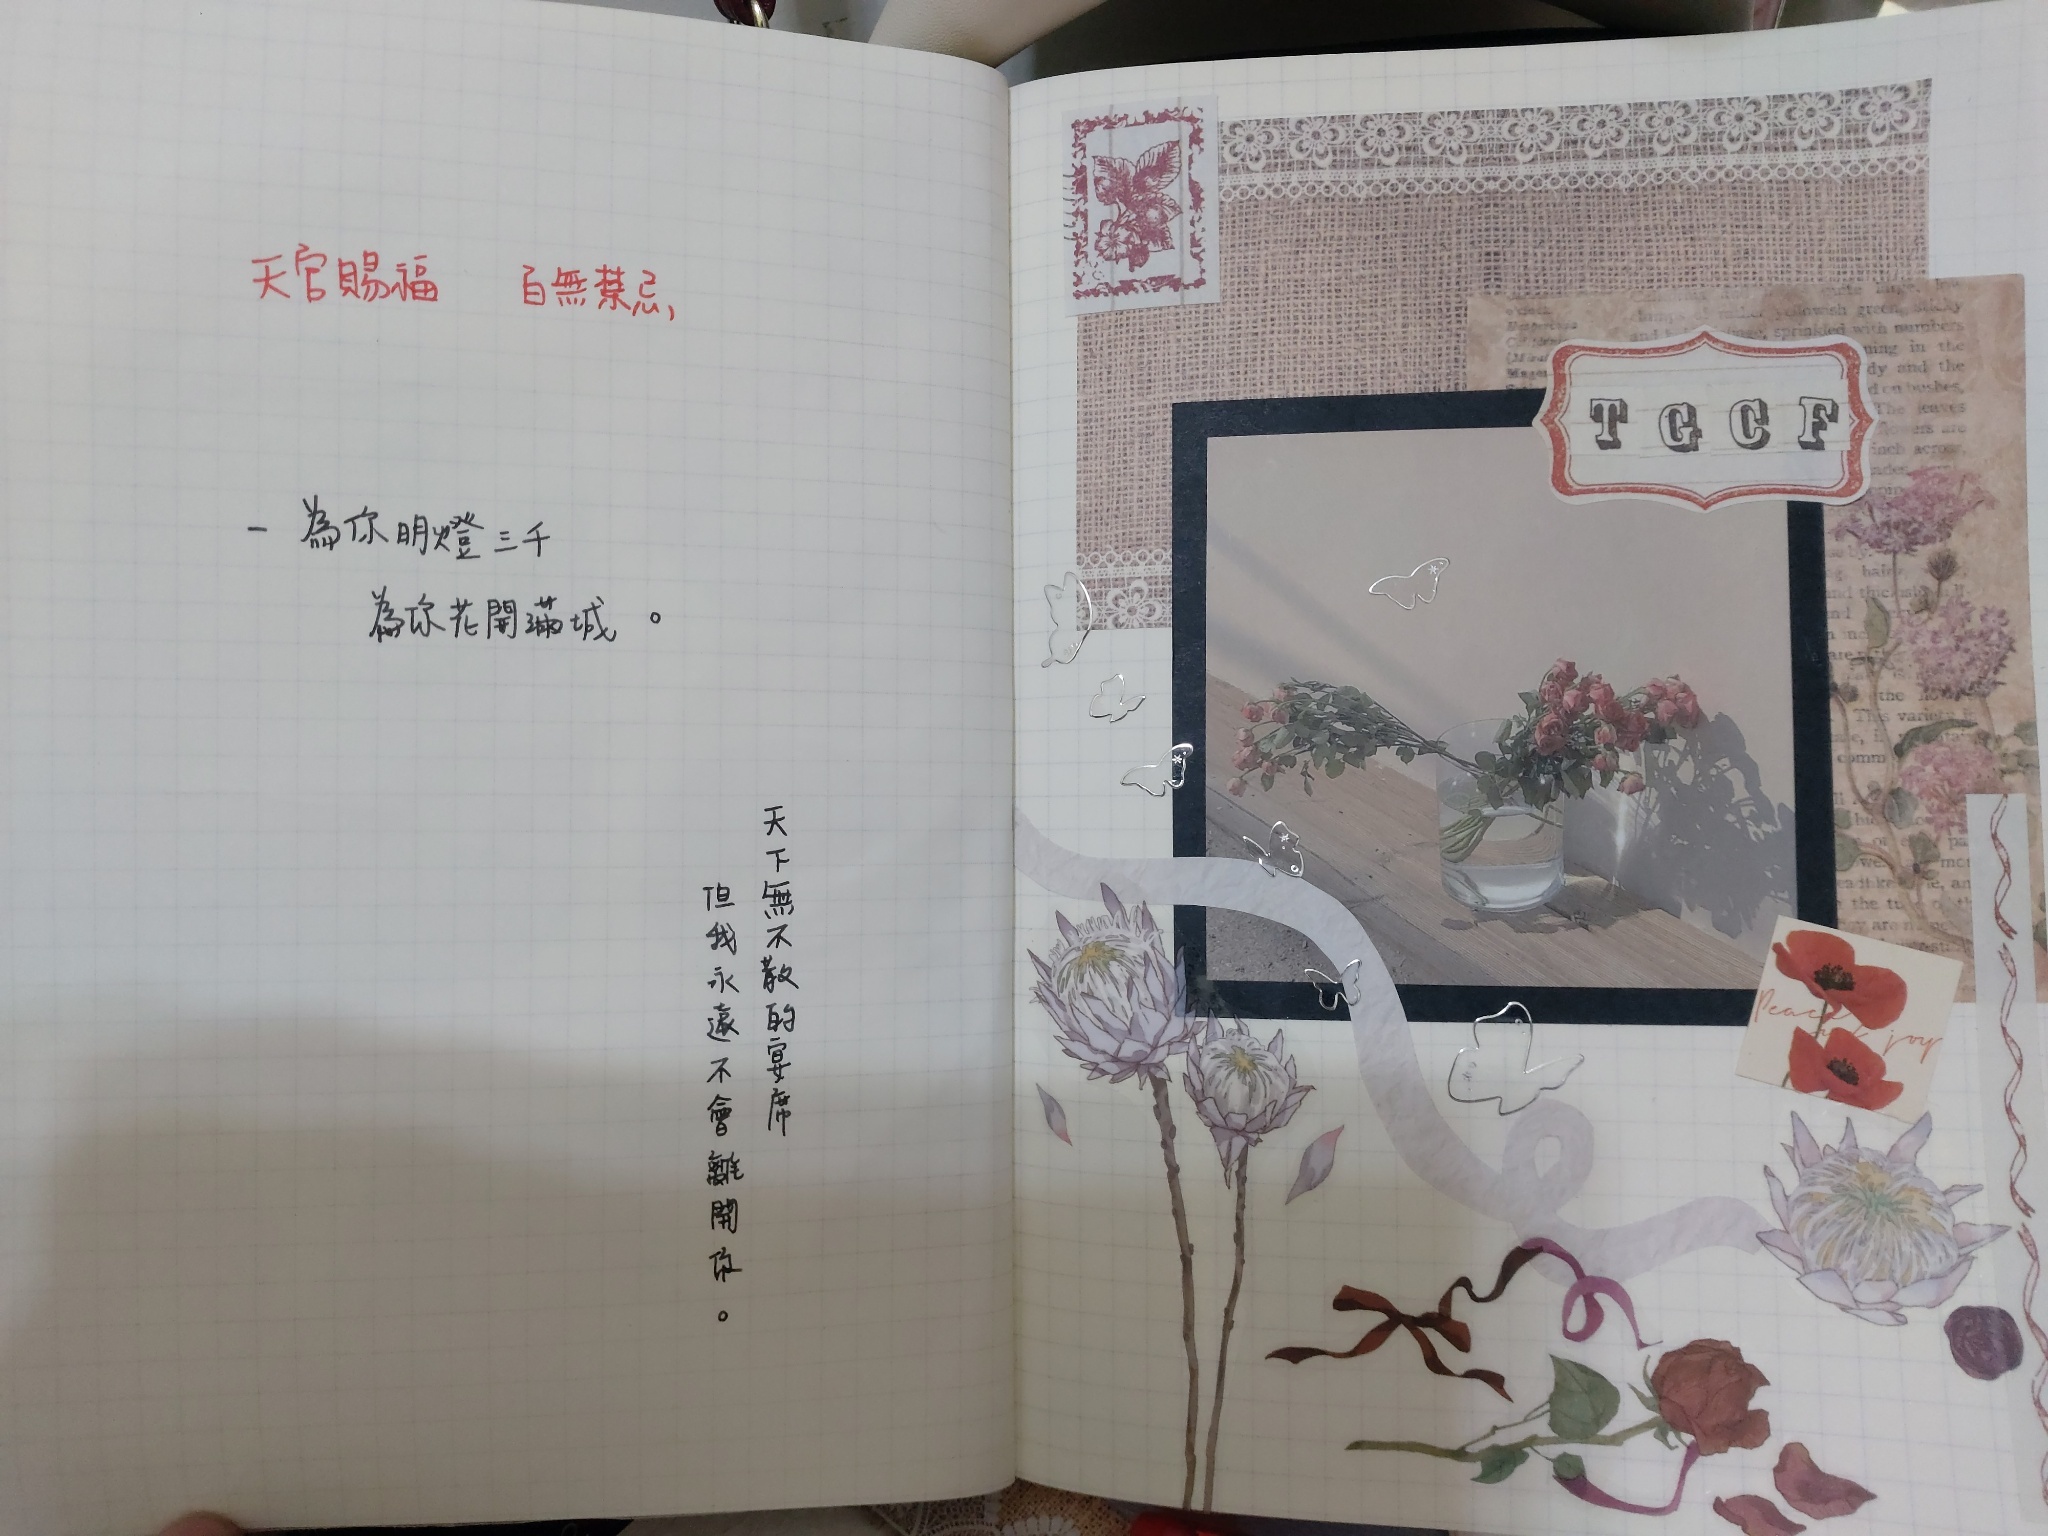 天官賜福 百無禁忌,
- 為你明燈三千
為你花開滿城。
天下無不散的宴席
但我永遠不會離開你。
TGCF
yellowish green, sticky
sprinkled with numbers
in the
and the
on bushes,
The leaves
flowers are
inch across,
the
This variety
comm
Peace & joy